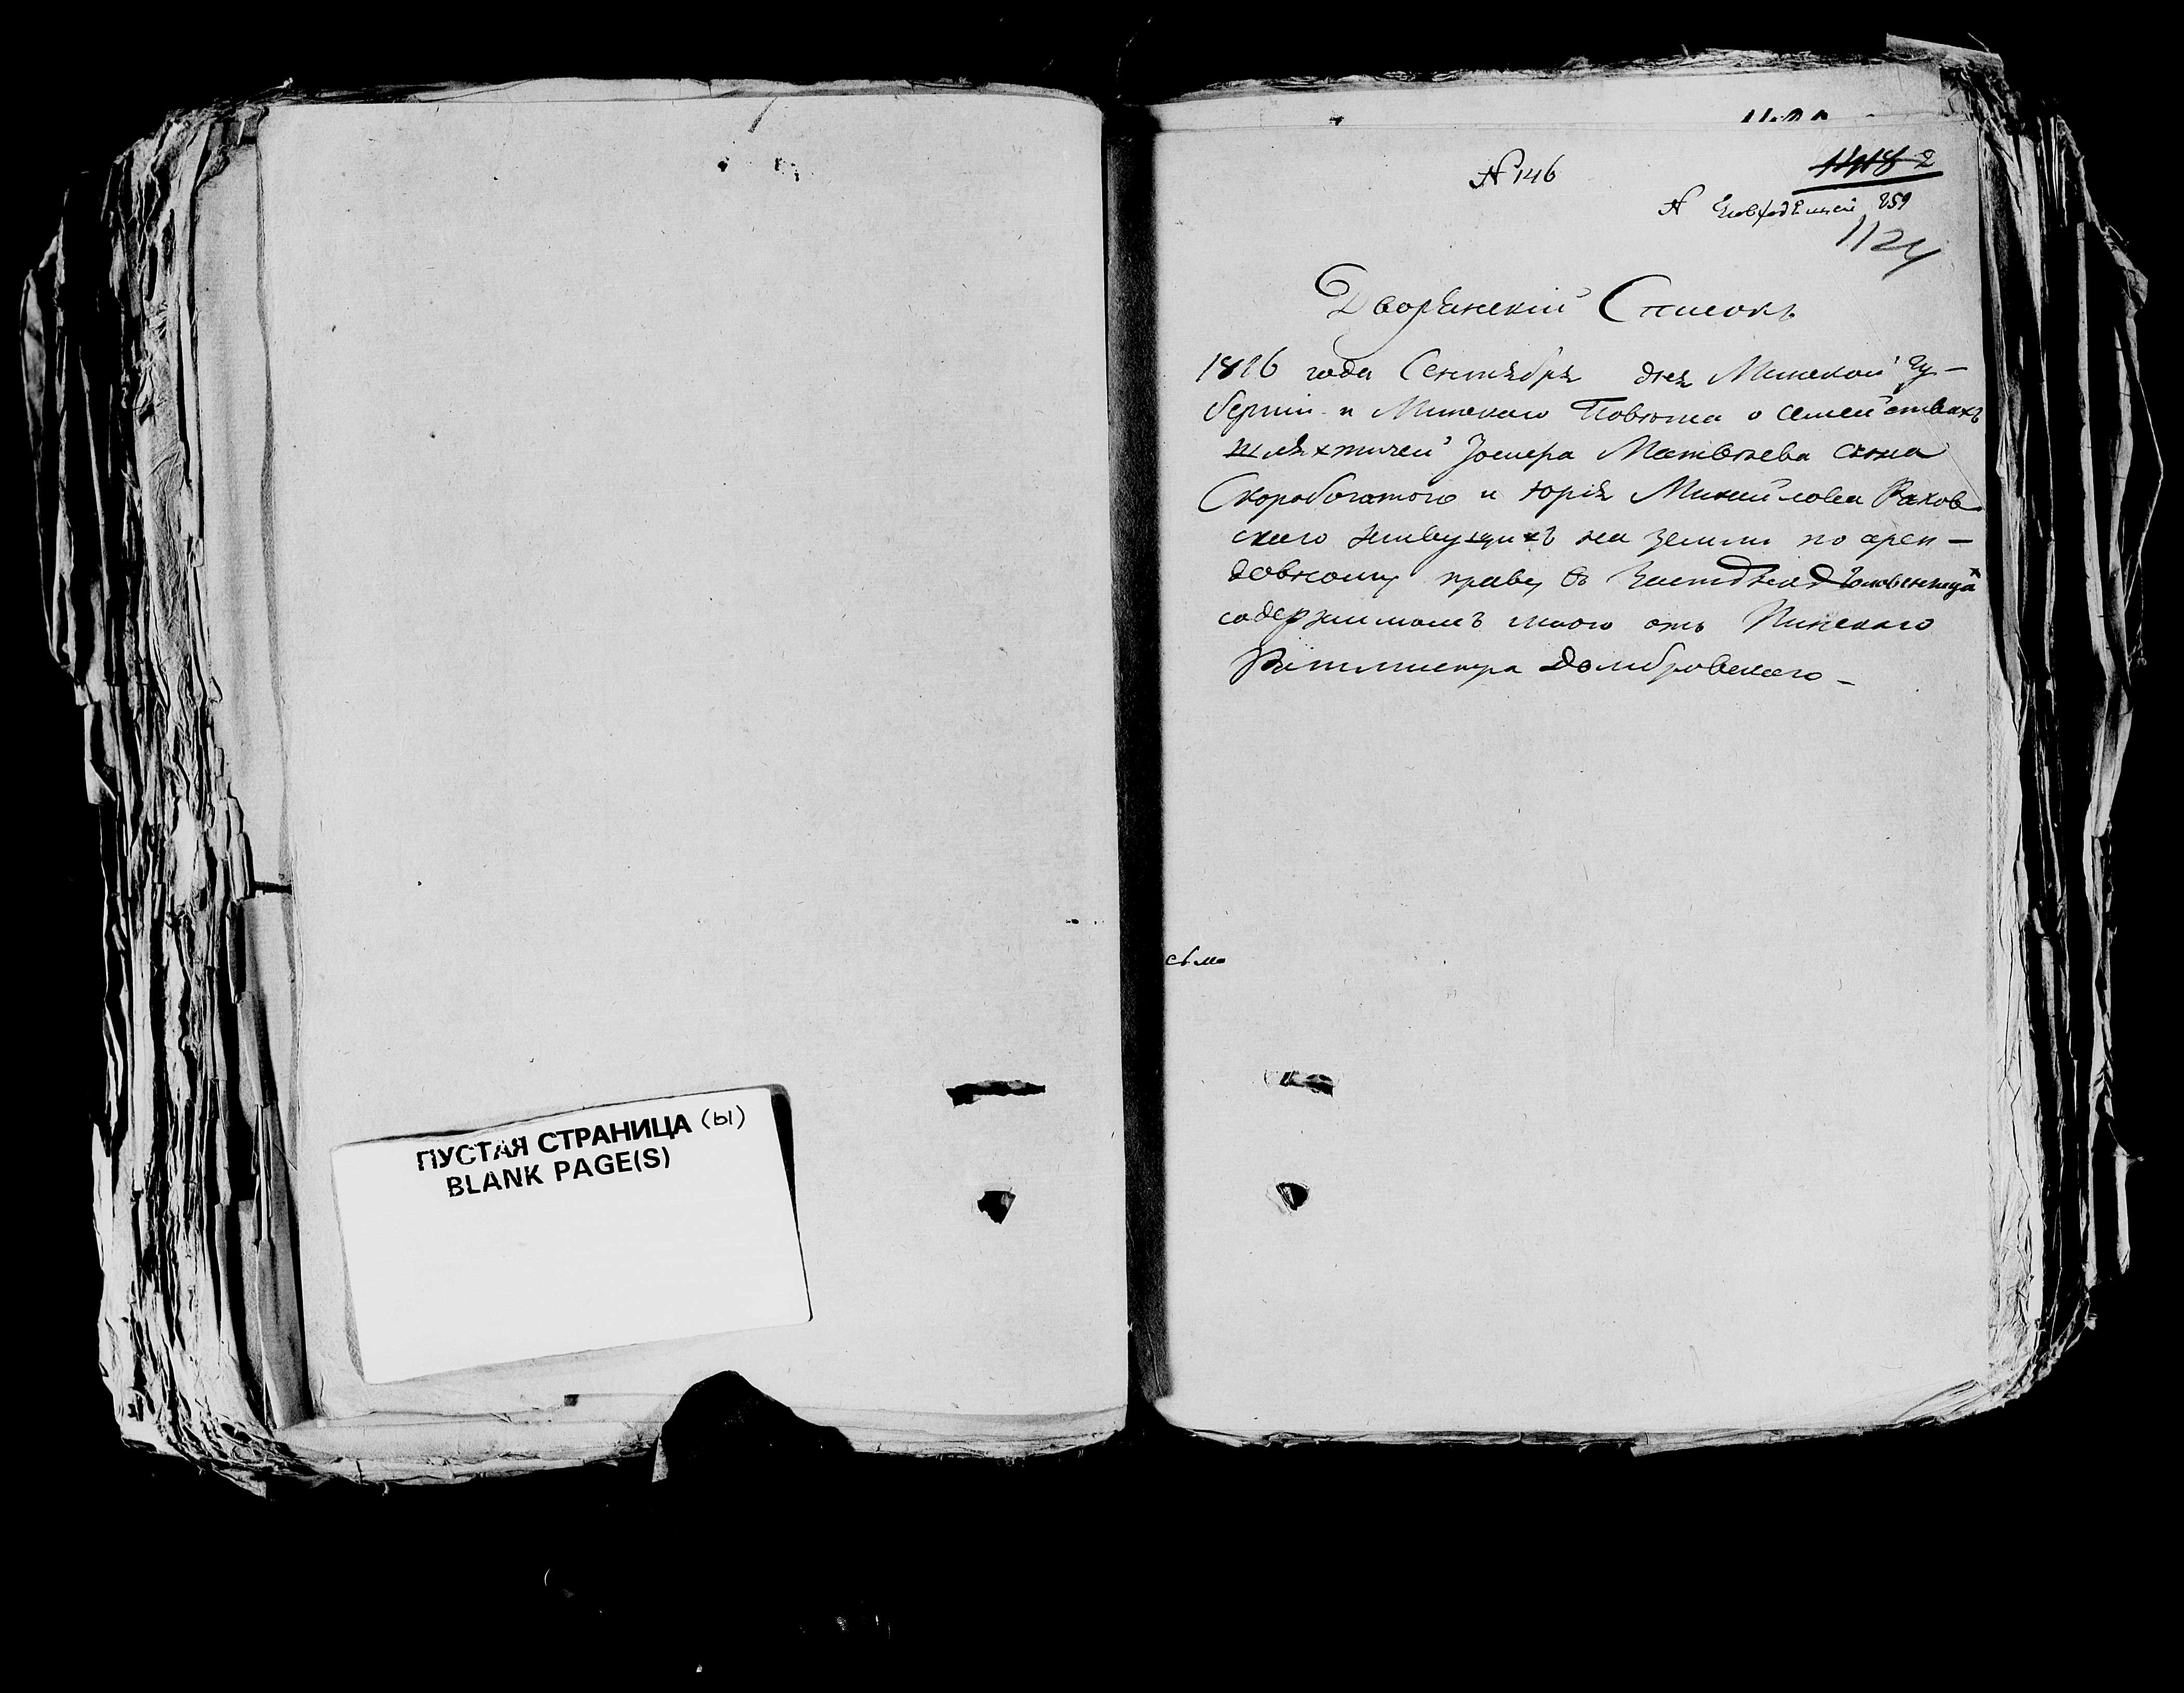 ПУСТАЯ СТРАНИЦА (Ы)
BLANK PAGE(S)
№ 146
№ 259
1124
Дворянский Списокъ
1816 года Сентября дня Минской Гу-
берніи и Минскаго Повѣта о семействахъ
шляхтичей Матвѣева сына
Скоробогатого и Юрія Михайлова Раков
скаго живущихъ на земли по арен-
довному праву въ
содержимомъ мною отъ Пинскаго
Ротмистра Домбровскаго -